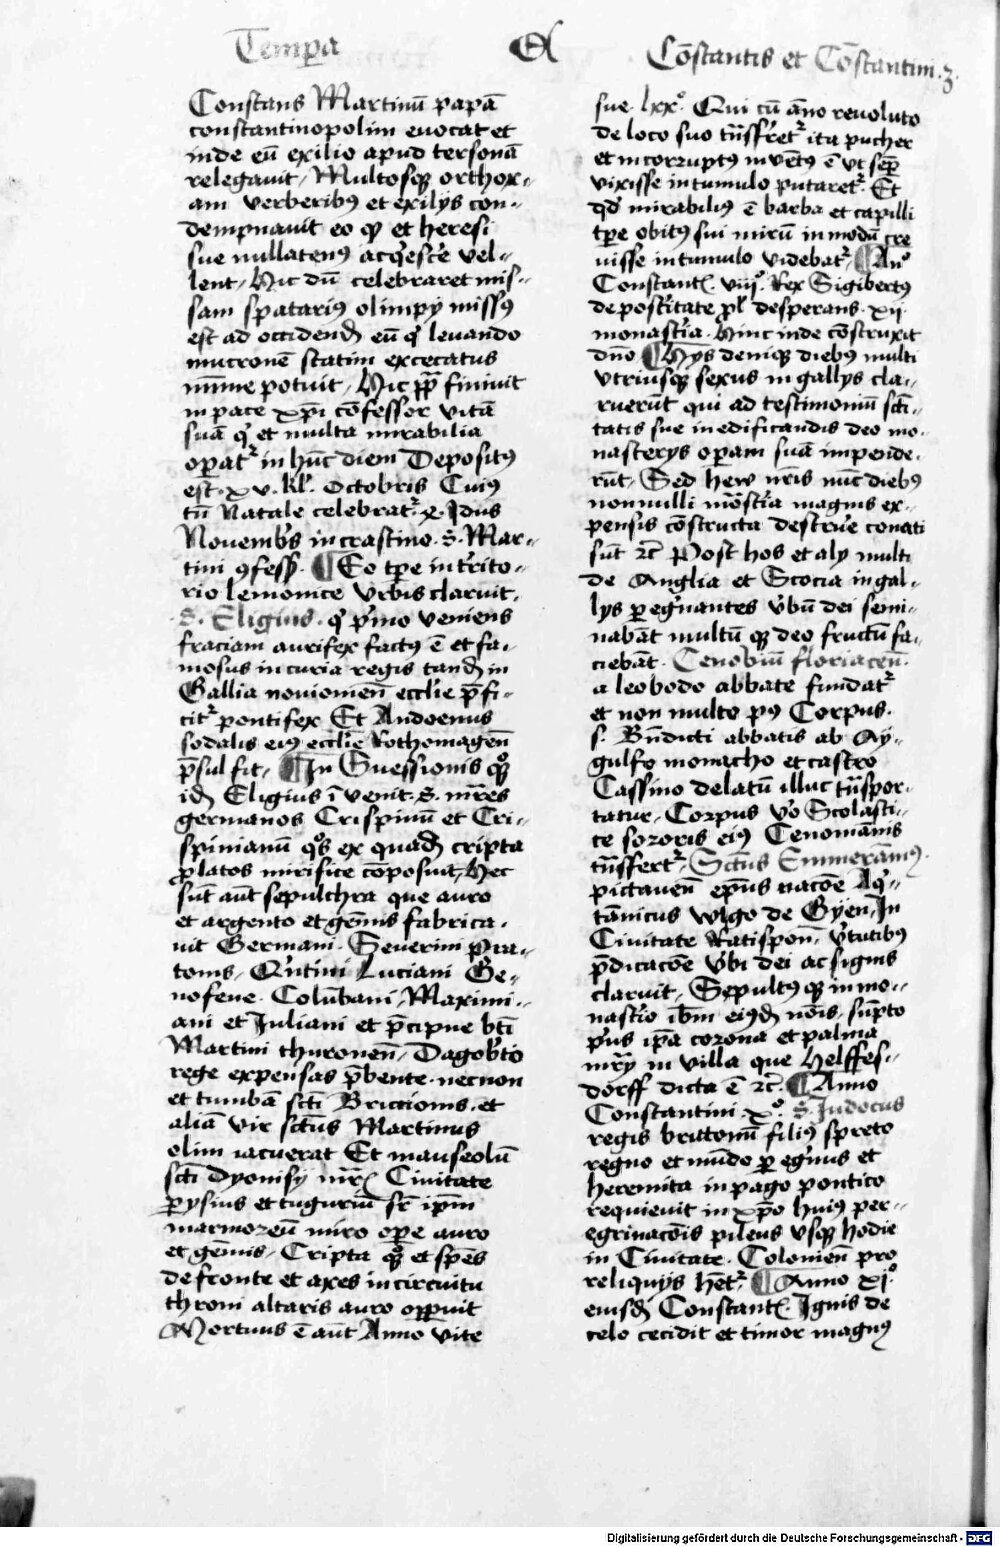 Tempa Et Cōstantis et Cōstantini 3.
Constans Martinū papā
constantinopolim euocat et
inde eū exilio apud tersonā
relegauit, Multosqꝫ orthox-
am verberibꝰ et exilijs con-
dempnauit eo qꝫ et heresi
sue nullatenꝰ acq̇esce̅ vel-
lent, Hic dū celebraret mis-
sam spatariꝰ olimpij missꝰ
est ad occidendū eū qͥ leuando
mucronē statim excecatus
mīme potuit, Hic pp̄ finiuit
in pace xp̄i cōfessor vitā
suā qͥ et multa mirabilia
opat in hūc diem Depositꝰ
est. xv. kl. Octobris Cuiꝰ
tn̄ Natale celebrat. x. Idus
Nouembs in crastino. S. Mar-
tini ꝯfess. Eo tpe in trito-
rio lemouice vrbis claruit.
S. Eligius. qͥ pͥmo veniens
franciam aurifex factꝰ ē et fa-
mosus in curia regis tandē in
Gallia nouiomen̄ ecclīe p̄fi-
citꝰ pontifex Et Andoenus
sodalis eiꝰ ecclīe Rothomagen̄
p̄sul fit, In Suessionis qꝫ
idē Eligius īvenit. S. mr̄es
germanos Crispinū et Cri-
spinianū qͦs ex quadā cripta
platos mirifice cōposuit, Hec
sūt aūt sepulchra que auro
et argento et gēmis fabrica-
uit Germani. Seuerini Pia-
tonis, Qͥntini Luciani Ge-
nofeue. Colūbani, Maximi-
ani et Iuliani et p̄cipue bti
Martini thuronen̄, Dagobto
rege expensas p̄bente. necnon
et tumbā scti Briccionis. et
aliā vir sctus Martinus
olim iacuerat Et mauseolū
scti dyonisij mr̄ Ciuitate
pysius et tuguriū sr ipm
marmoreū miro ope auro
et gēmis, Cripta qꝫ et spēs
de fronte et axes in circuitu
throni altaris auro oppuit
Mortuus ē aūt Anno vite
sue. lxx. Qui cū āno reuoluto
de loco suo tn̄sfret ita pucher
et incorruptꝰ invētꝰ ē vt semp
vixisse in tumulo putaret. Et
qd mirabiliꝰ ē barba et capilli
tpe obitꝰ sui mirū in modū cre
uisse in tumulo videbat, Anͦ
Constant. viij. Rex Sigibertꝰ
de postitate pl desperans. xij.
monastia. Hinc inde cōstruxit
dn̄o Hijs deniqꝫ diebꝰ multi
vtriusqꝫ sexus in gallijs cla-
ruerūt qui ad testimoniū scti-
tatis sue in edificandis deo mo-
nasterijs opam suā impende-
rūt, Sed hew nr̄is nūc diebꝰ
nonnulli mōstia magnis ex-
pensis cōstructa destrue conati
sūt zc̄ Post hos et alij multi
de Anglia et Scocia in gal-
lijs pegnantes vbū dei semi-
nabāt multū qꝫ deo fructū fa-
ciebāt. Cenobiū floriacen̄.
a leobodo abbate fundat
et non multo pꝰ Corpus.
s. Bn̄dicti abbatis ab Ay-
gulfo monacho et castro
Cassino delatū illuc tn̄spor-
tatur, Corpus vo Scolasti-
ce sororis eiꝰ Cenomānis
tn̄sfert, Sctūs Emmerāmꝰ.
pictauen̄ ep̄us nacōe Aqͥ-
tānicus wlgo de Gyen, In
Ciuitate Ratispon̄, vtutibꝰ
p̄dicacōe vbi dei ac signis
claruit, Sepultꝰ qꝫ in mo-
nastio ibm eiꝰdē nōis, sūpto
pꝰus ip̄a corona et palma
mr̄ij in villa que Helffes-
dorff dicta ē zc̄. Anno
Constantini. x. S. Iudocus
regis britonū filiꝰ spreto
regno et mūdo pegnus et
heremita in pago pontico
requieuit in xp̄o huiꝰ per-
egrinacōis pileus vsqꝫ hodie
in Ciuitate. Colonien̄ pro
reliquijs hēt. Anno xj.
eiusdē Constant. Ignis de
celo cecidit et timor magnꝰ
Digitalisierung gefördert durch die Deutsche Forschungsgemeinschaft - DFG